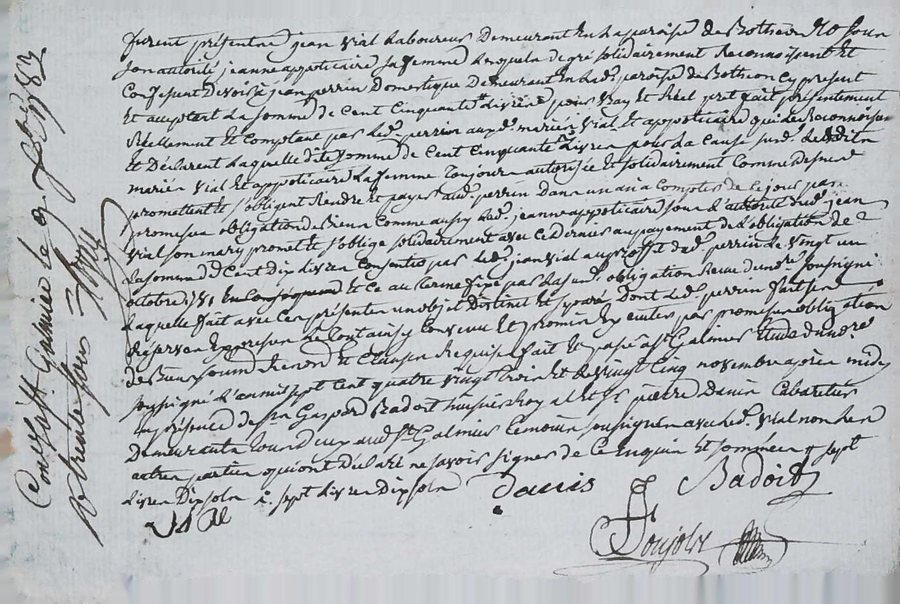 furent présentre jean vial Laboureur Demeurant En La paroise de Botheon
son autorité jeanne appoticaire sa femme Lesquels de gré solidairement Reconnoissent Et
Confessent Devoir à jean perrin Domestique Demeurant En Lad. paroise de Botheon cy present
Et acceptant La somme de Cent Cinquante Livres pour vray Et Réel pret fait présentement
Réellement Et Comptant par Led. perrin auxd. mariés vial Et appoticaire qui Le Reconnoissent
Et Déclarent Laquelle dite somme de Cent Cinquante Livres pour La Cause susd. Lesdits
mariés vial Et appoticaire La femme toujours autorisée Et solidairement Comme dessus
promettent Et s'obligent Rendre Et payer aud. perrin Dans un an à Compter de Ce jour par
promesse obligation de Bien Comme aussy Lad. jeanne appoticaire sous L'autorité dud. jean
vial son mary promet Et s'oblige solidairement avec Ce Dernier au payement de L'obligation de
La somme de Cent Dix Livres Consentie par Led. jean vial au proffit dud. perrin Le vingt un
octobre 1781 En Conséquence Et Ce au terme fixé par La susd. obligation Reçue du nore soussigné
Laquelle fait avec Ces présentes un objet Distinct Et separé Dont Led. perrin fait ses
Réserves Expresses De tout ainsy Convenu Et promis par promesse obligation
de Bien soum. Renon. Et Clauses Requises fait Et passé à St Galmier Etude du nore
soussigné L'an mil sept Cent quatre vingt trois Et Le vingt Cinq novembre après midy
En présence de sr Gaspard Badoit huissier Royal Et sr pierre Danis Cabaretier
Demeurants tous deux aud. St Galmier temoins soussignés avec Led. vial non Les
autres parties qui ont Déclaré ne savoir signer de Ce Enquis Et sommées sept
Livres Dix sols sept Livres Dix sols
Danis Badoit
vial
Poujols
Conllé à St Galmier Le 9 Xbre 1783
Reçu trente sols